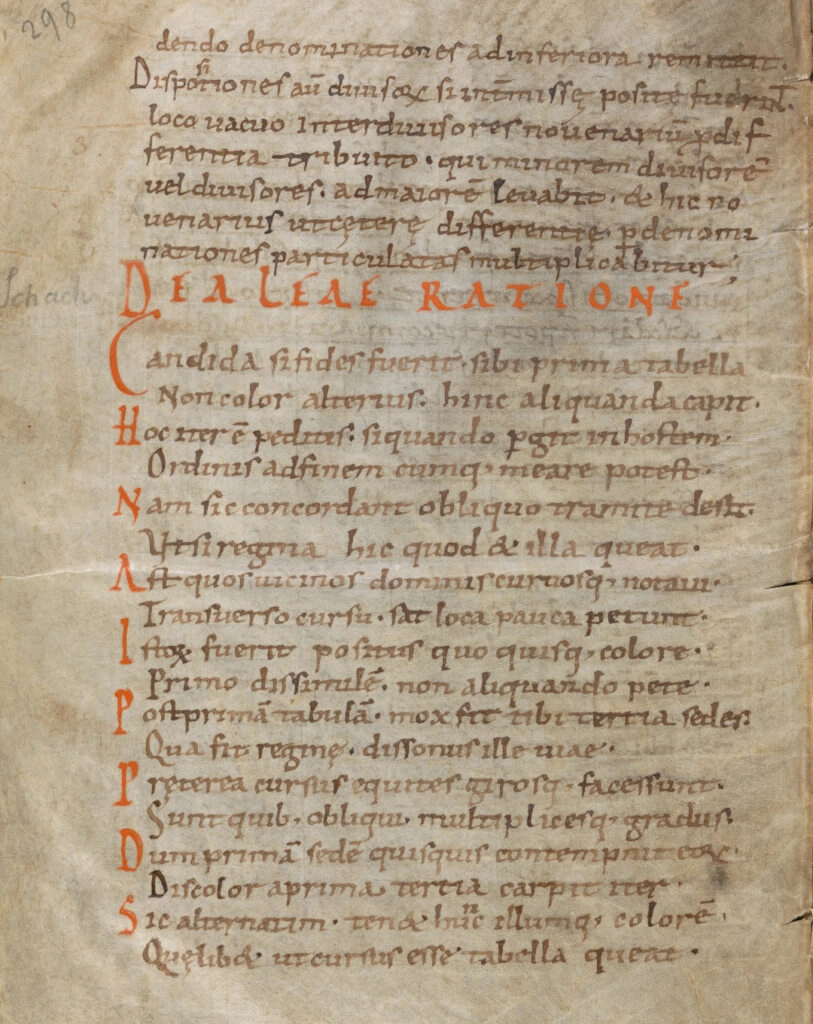 298
dendo denominationes ad inferiora remittit.
Dispositiones aū diuisoꝝ si int̄missę positę fuerint.
loco uacuo interdiuisores nouenariū ꝓ dif
ferentia tribuito. qui minorem diuisorē
uel diuisores. ad maiorē leuabit. & hic no
uenarius ut cęterę differentię. ꝑ denomi
nationes particulatas multiplicabitur;
Schach
DE ALEAE RATIONE
Candida si fides fuerit. sibi prima tabella
Non color alterius. hinc aliquanda capit.
Hoc iter ē peditis. siquando ꝑgit in hostem.
Ordinis ad finem cumq, meare potest.
Nam sic concordant obliquo tramite desit.
Ut si regina hic quod & illa queat.
Ast quos uicinos dominis curuosq, notaui.
Transuerso cursu. sat loca pauca petunt.
Istoꝝ fuerit positus quo quisq, colore.
Primo dissimilē. non aliquando pete.
Post primā tabulā. mox fit tibi tertia sedes.
Qua fit reginę. dissonus ille uiae.
Pręterea cursus equites girosq, facessunt.
Sunt quib, obliqui. multiplicesq, gradus.
Dum primā sedē quisquis contempnit eoꝝ.
Discolor a prima. tertia carpit iter.
Sic alternatim. tend& hunc illumq, colorē.
Quęlib& ut cursus esse tabella queat.